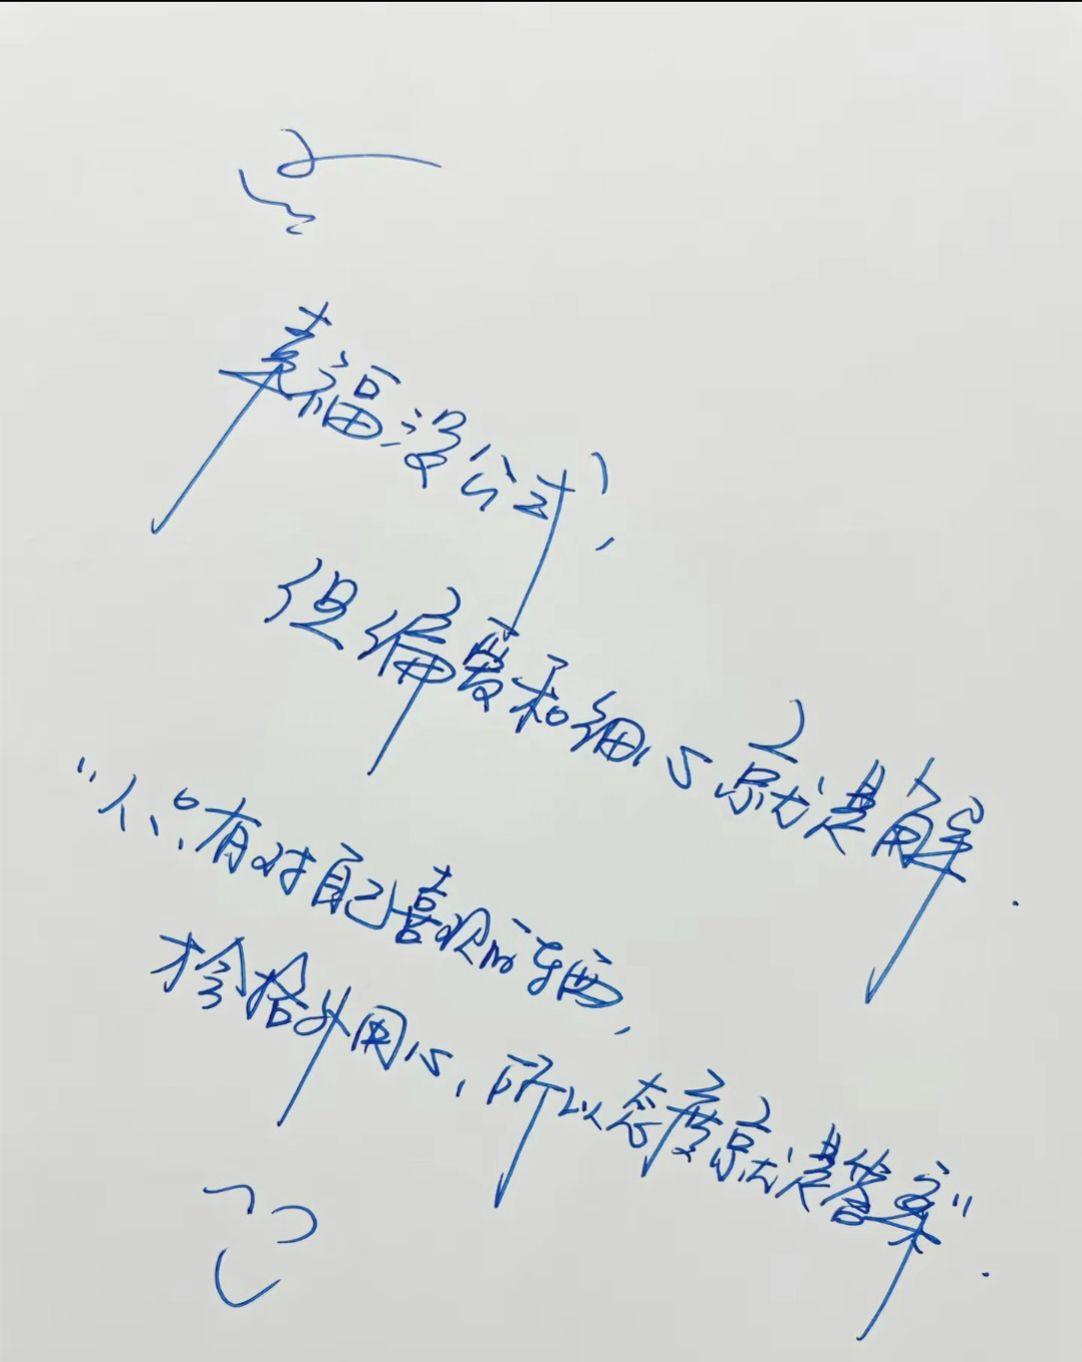 幸福没公式，
但偏爱和细心就是解.
"人只有对自己喜欢的东西，
才会格外用心，所以态度就是答案".